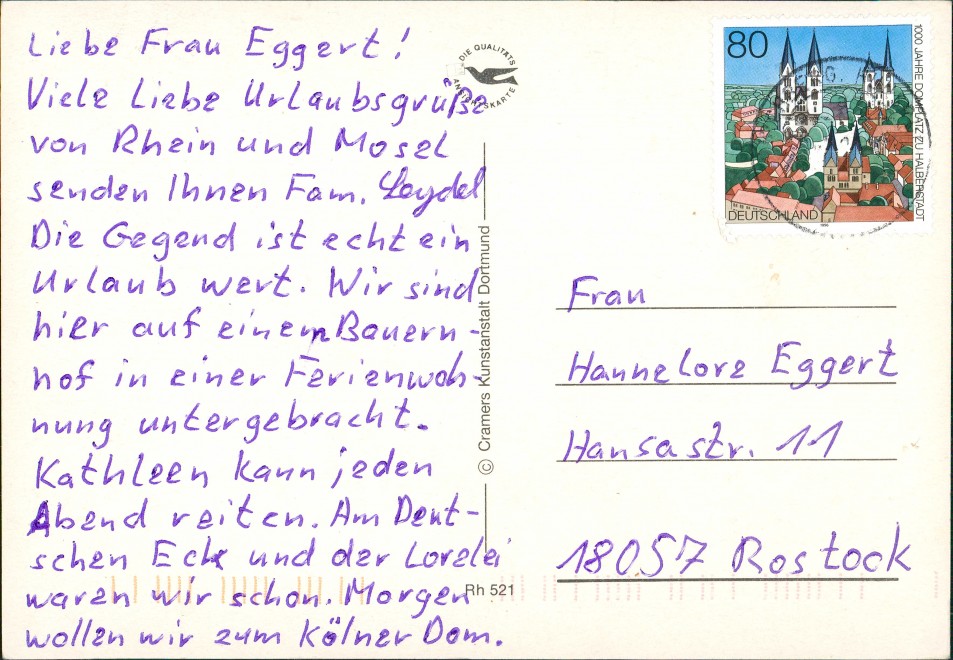 Liebe Frau Eggert!
Viele Liebe Urlaubsgrüße
von Rhein und Mosel
senden Ihnen Fam. Leydel
Die Gegend ist echt ein
Urlaub wert. Wir sind
hier auf einem Bauern-
hof in einer Ferienwoh-
nung untergebracht.
Kathleen kann jeden
Abend reiten. Am Deut-
schen Eck und der Lorelei
waren wir schon. Morgen
wollen wir zum Kölner Dom.
DIE QUALITÄTS
ANSICHTSKARTE
© Cramers Kunstanstalt Dortmund
Rh 521
80
1000 JAHRE DOMPLATZ ZU HALBERSTADT
DEUTSCHLAND
Frau
Hannelore Eggert
Hansastr. 11
18057 Rostock